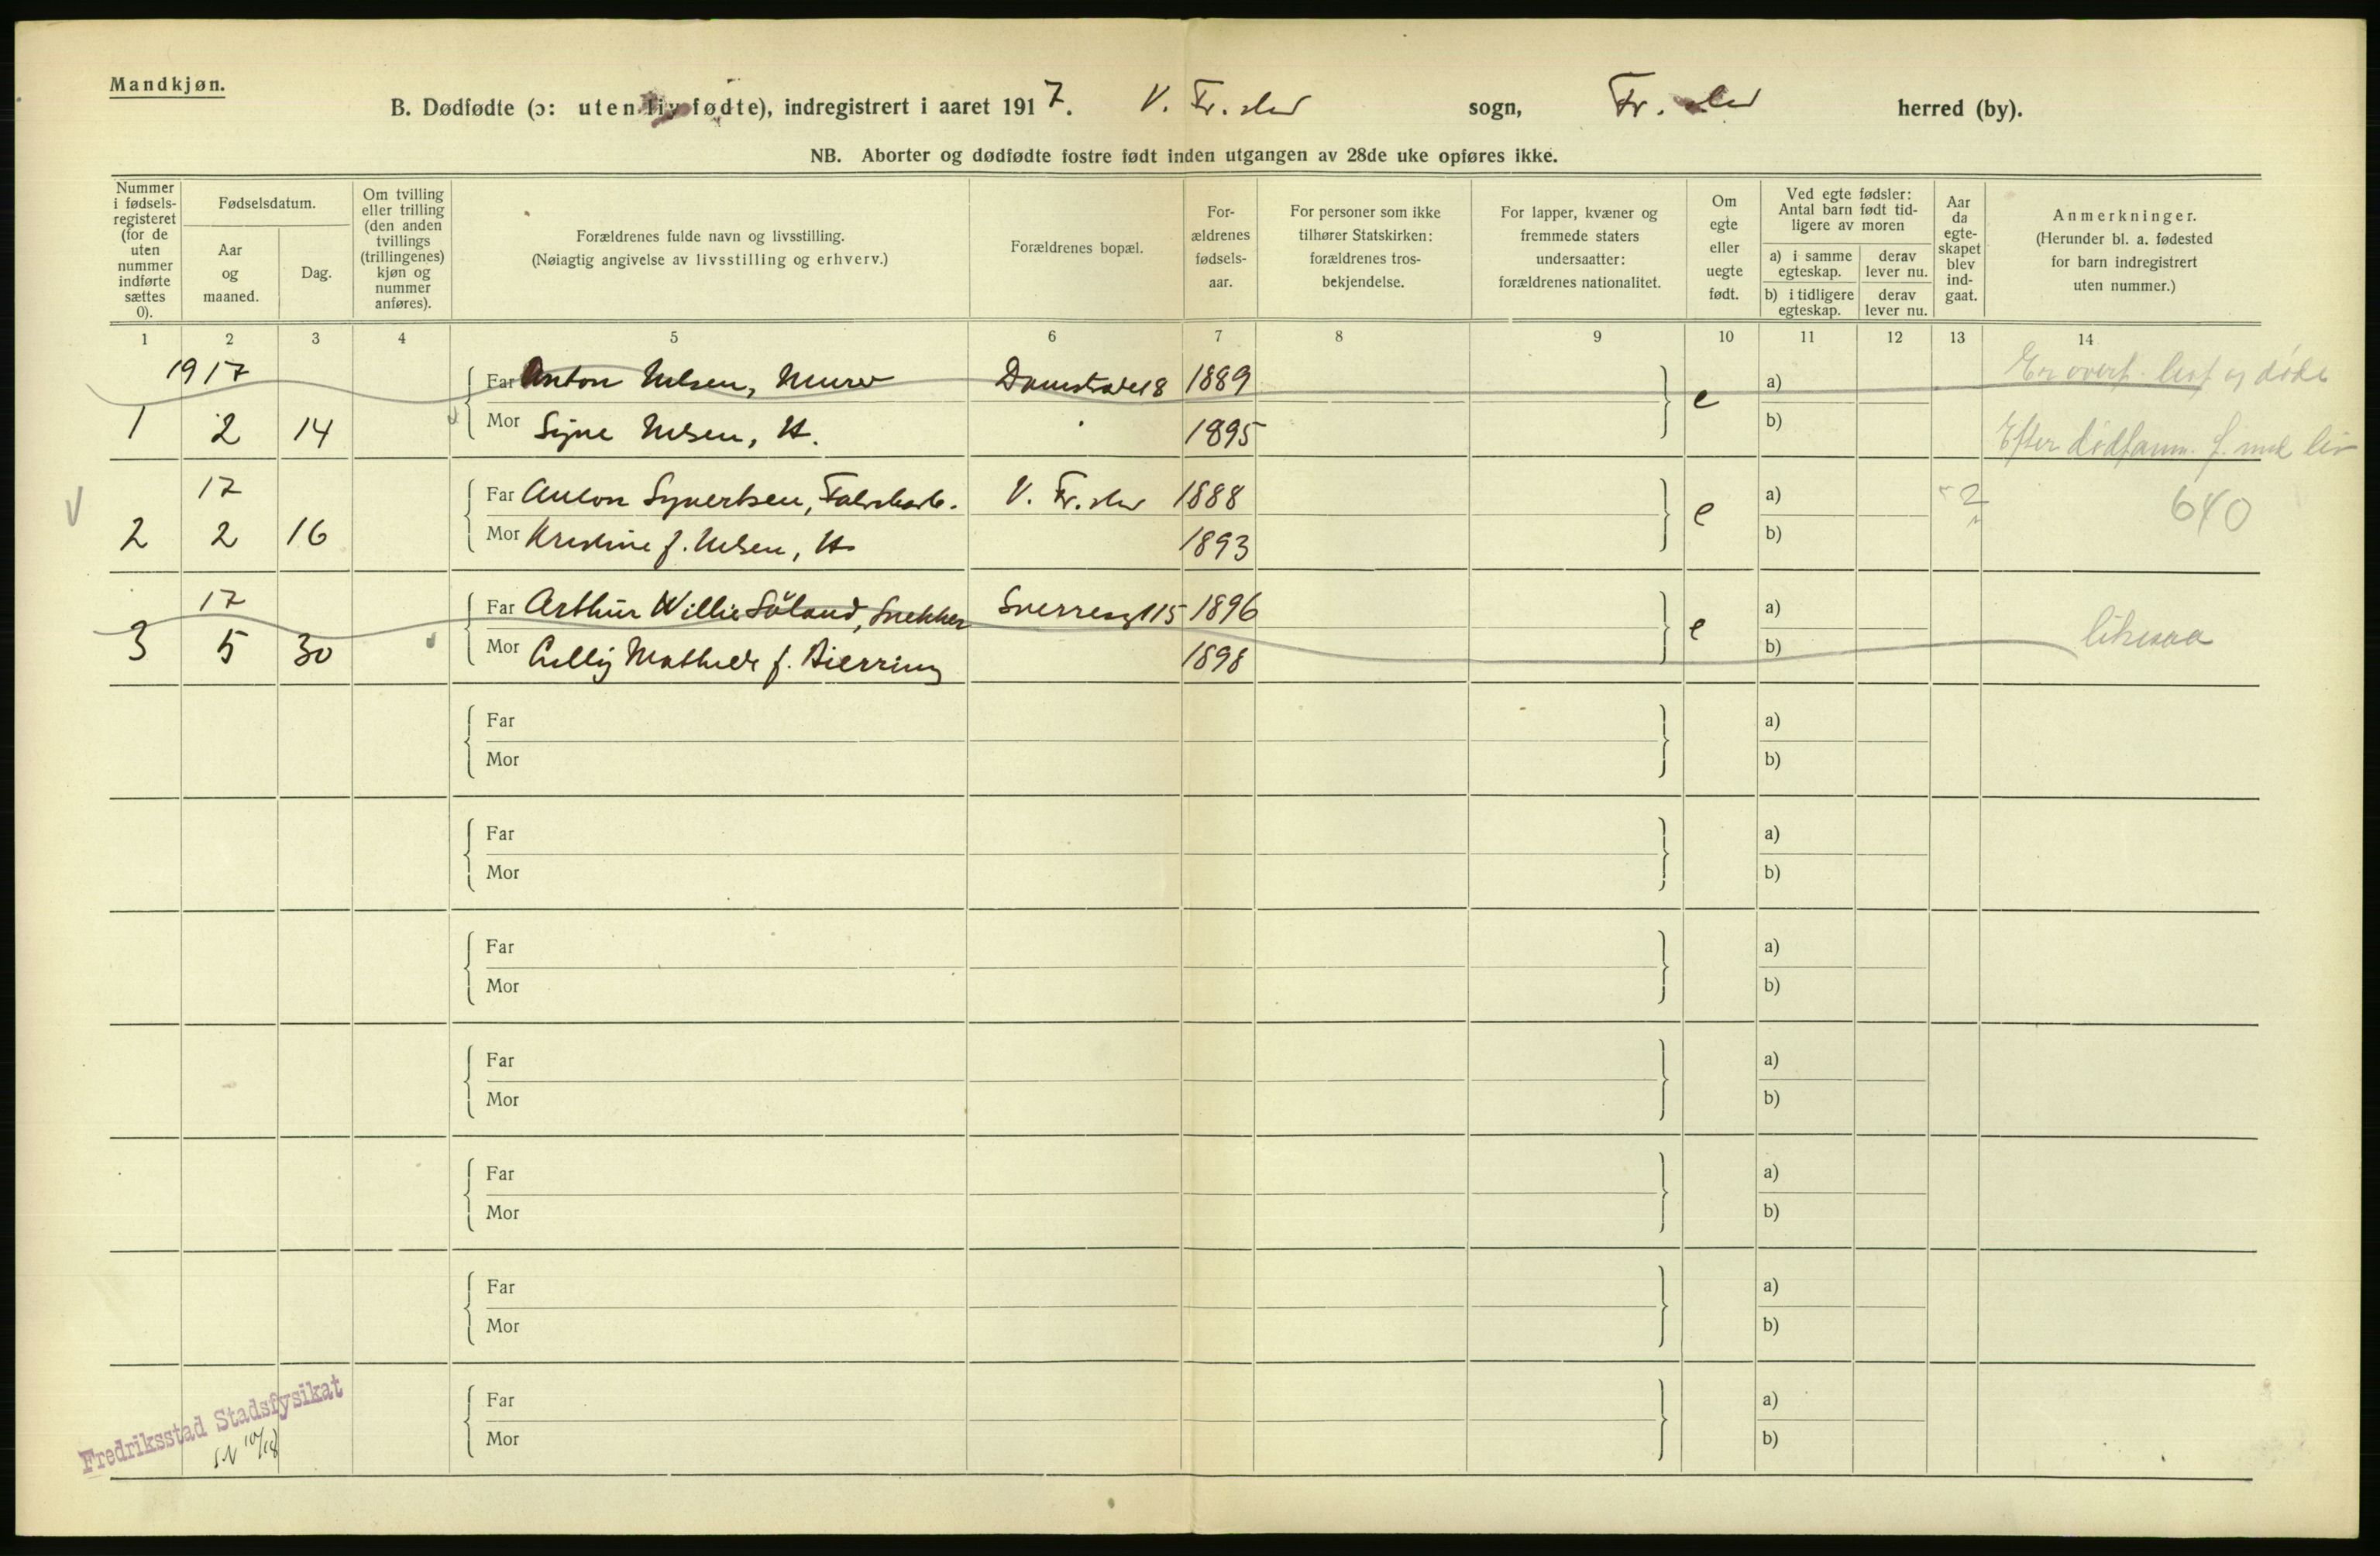 Mandkjøn.
B. Dødfødte (ɔ: uten liv fødte), indregistrert i aaret 1917. V. Fr.stad sogn, Fr.stad herred (by).
NB. Aborter og dødfødte fostre født inden utgangen av 28de uke opføres ikke.
Nummer i fødsels-registeret (for de uten nummer indførte sættes 0).
Fødselsdatum.
Aar og maaned.
Dag.
Om tvilling eller trilling (den anden tvillings (trillingenes) kjøn og nummer anføres).
Forældrenes fulde navn og livsstilling.
(Nøiagtig angivelse av livsstilling og erhverv.)
Forældrenes bopæl.
For-ældrenes fødsels-aar.
For personer som ikke tilhører Statskirken: forældrenes tros-bekjendelse.
For lapper, kvæner og fremmede staters undersaatter: forældrenes nationalitet.
Om egte eller uegte født.
Ved egte fødsler: Antal barn født tid-ligere av moren
a) i samme egteskap.
derav lever nu.
b) i tidligere egteskap.
derav lever nu.
Aar da egte-skapet blev ind-gaat.
Anmerkninger.
(Herunder bl. a. fødested for barn indregistrert uten nummer.)
1 2 3 4 5 6 7 8 9 10 11 12 13 14
1917 Far Anton Nilsen, Murer 1889 a) og døde
1 2 14 Mor Signe Nilsen, H. 1895 e b) Efter f. med liv
17 Far Anton Syvertsen, V. Fr.stad 1888 a) 2 640
2 2 16 Mor Kristine f. Nilsen, H 1893 e b)
17 Far Arthur Willie Söland, Snekker Sverresg 115 1896 a)
3 5 30 Mor Lilly Mathilde f. Bierring 1898 e b) likesaa
Far a)
Mor b)
Far a)
Mor b)
Far a)
Mor b)
Far a)
Mor b)
Far a)
Mor b)
Far a)
Mor b)
Far a)
Mor b)
Fredriksstad Stadsfysikat
10/18